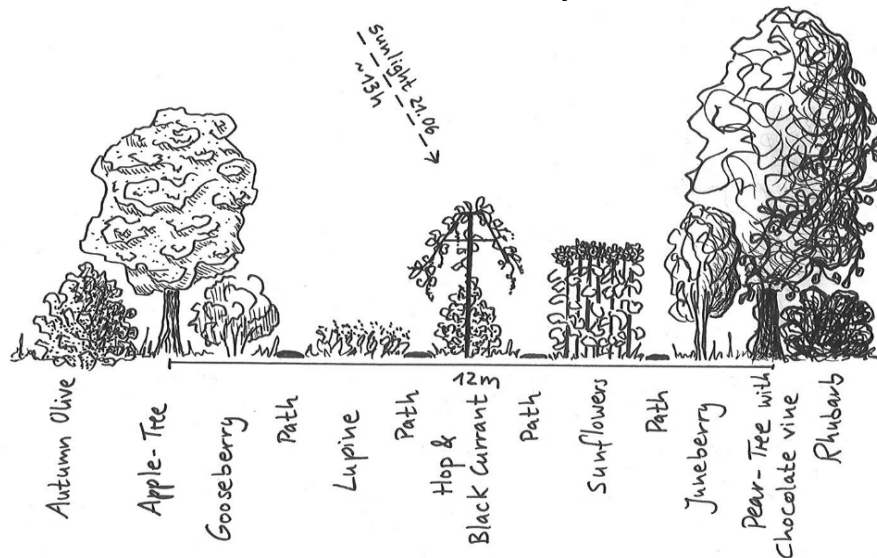 sunlight 21.06
~13h
12m
Autumn Olive
Apple-Tree
Gooseberry
Path
Lupine
Path
Hop &
Black Currant
Path
Sunflowers
Path
Juneberry
Pear-Tree with
Chocolate vine
Rhubarb